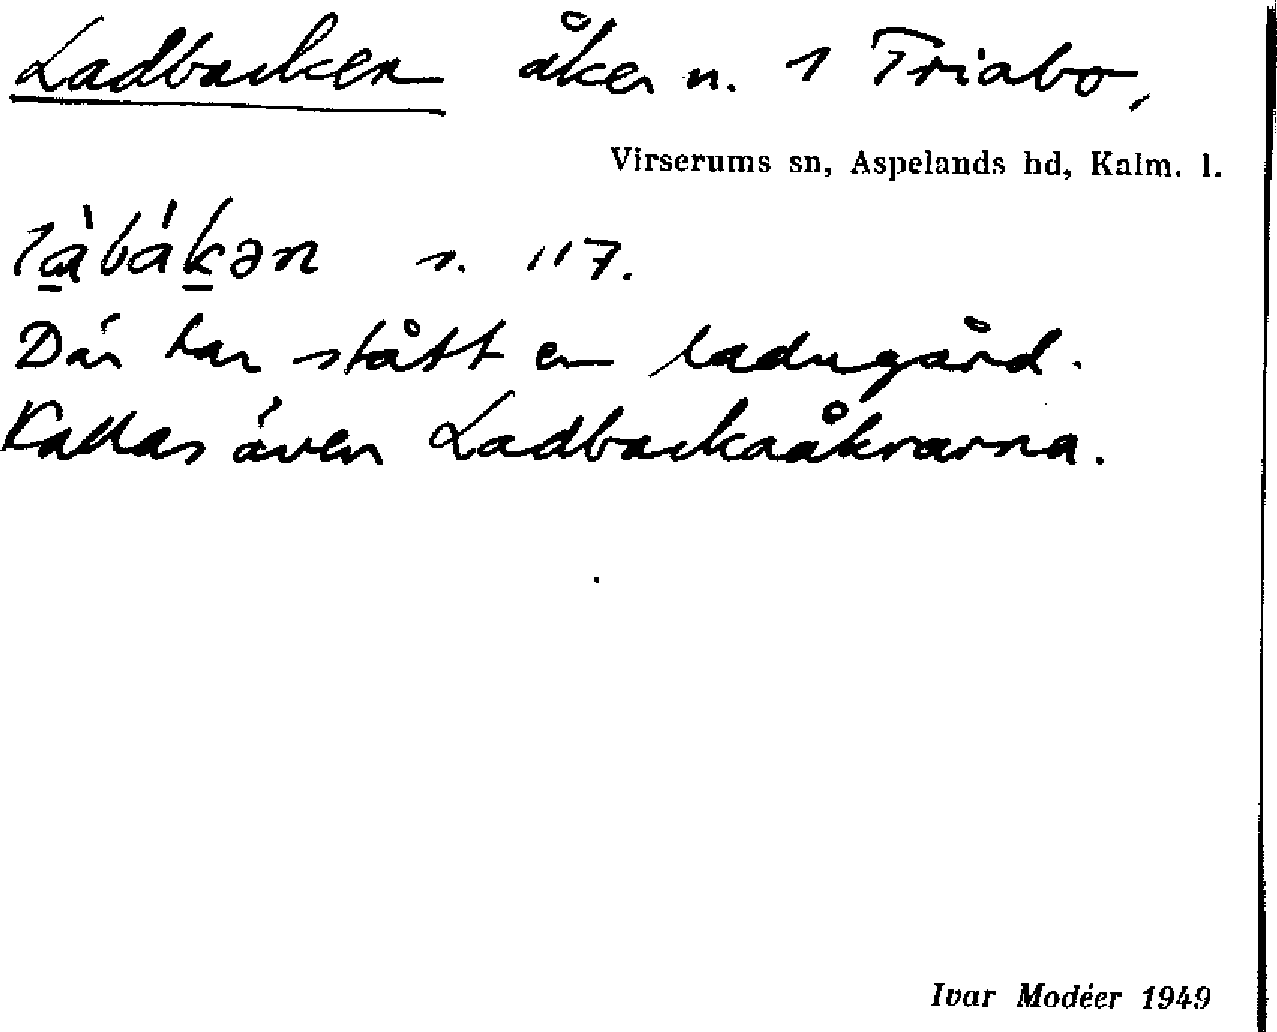 Ladbacken åker n. 1 Triabo,
Virserums sn, Aspelands hd, Kalm. l.
là̱báḵən s. 117.
Där har stått en ladugård.
Kallas även Ladbackaåkrarna.
Ivar Modéer 1949